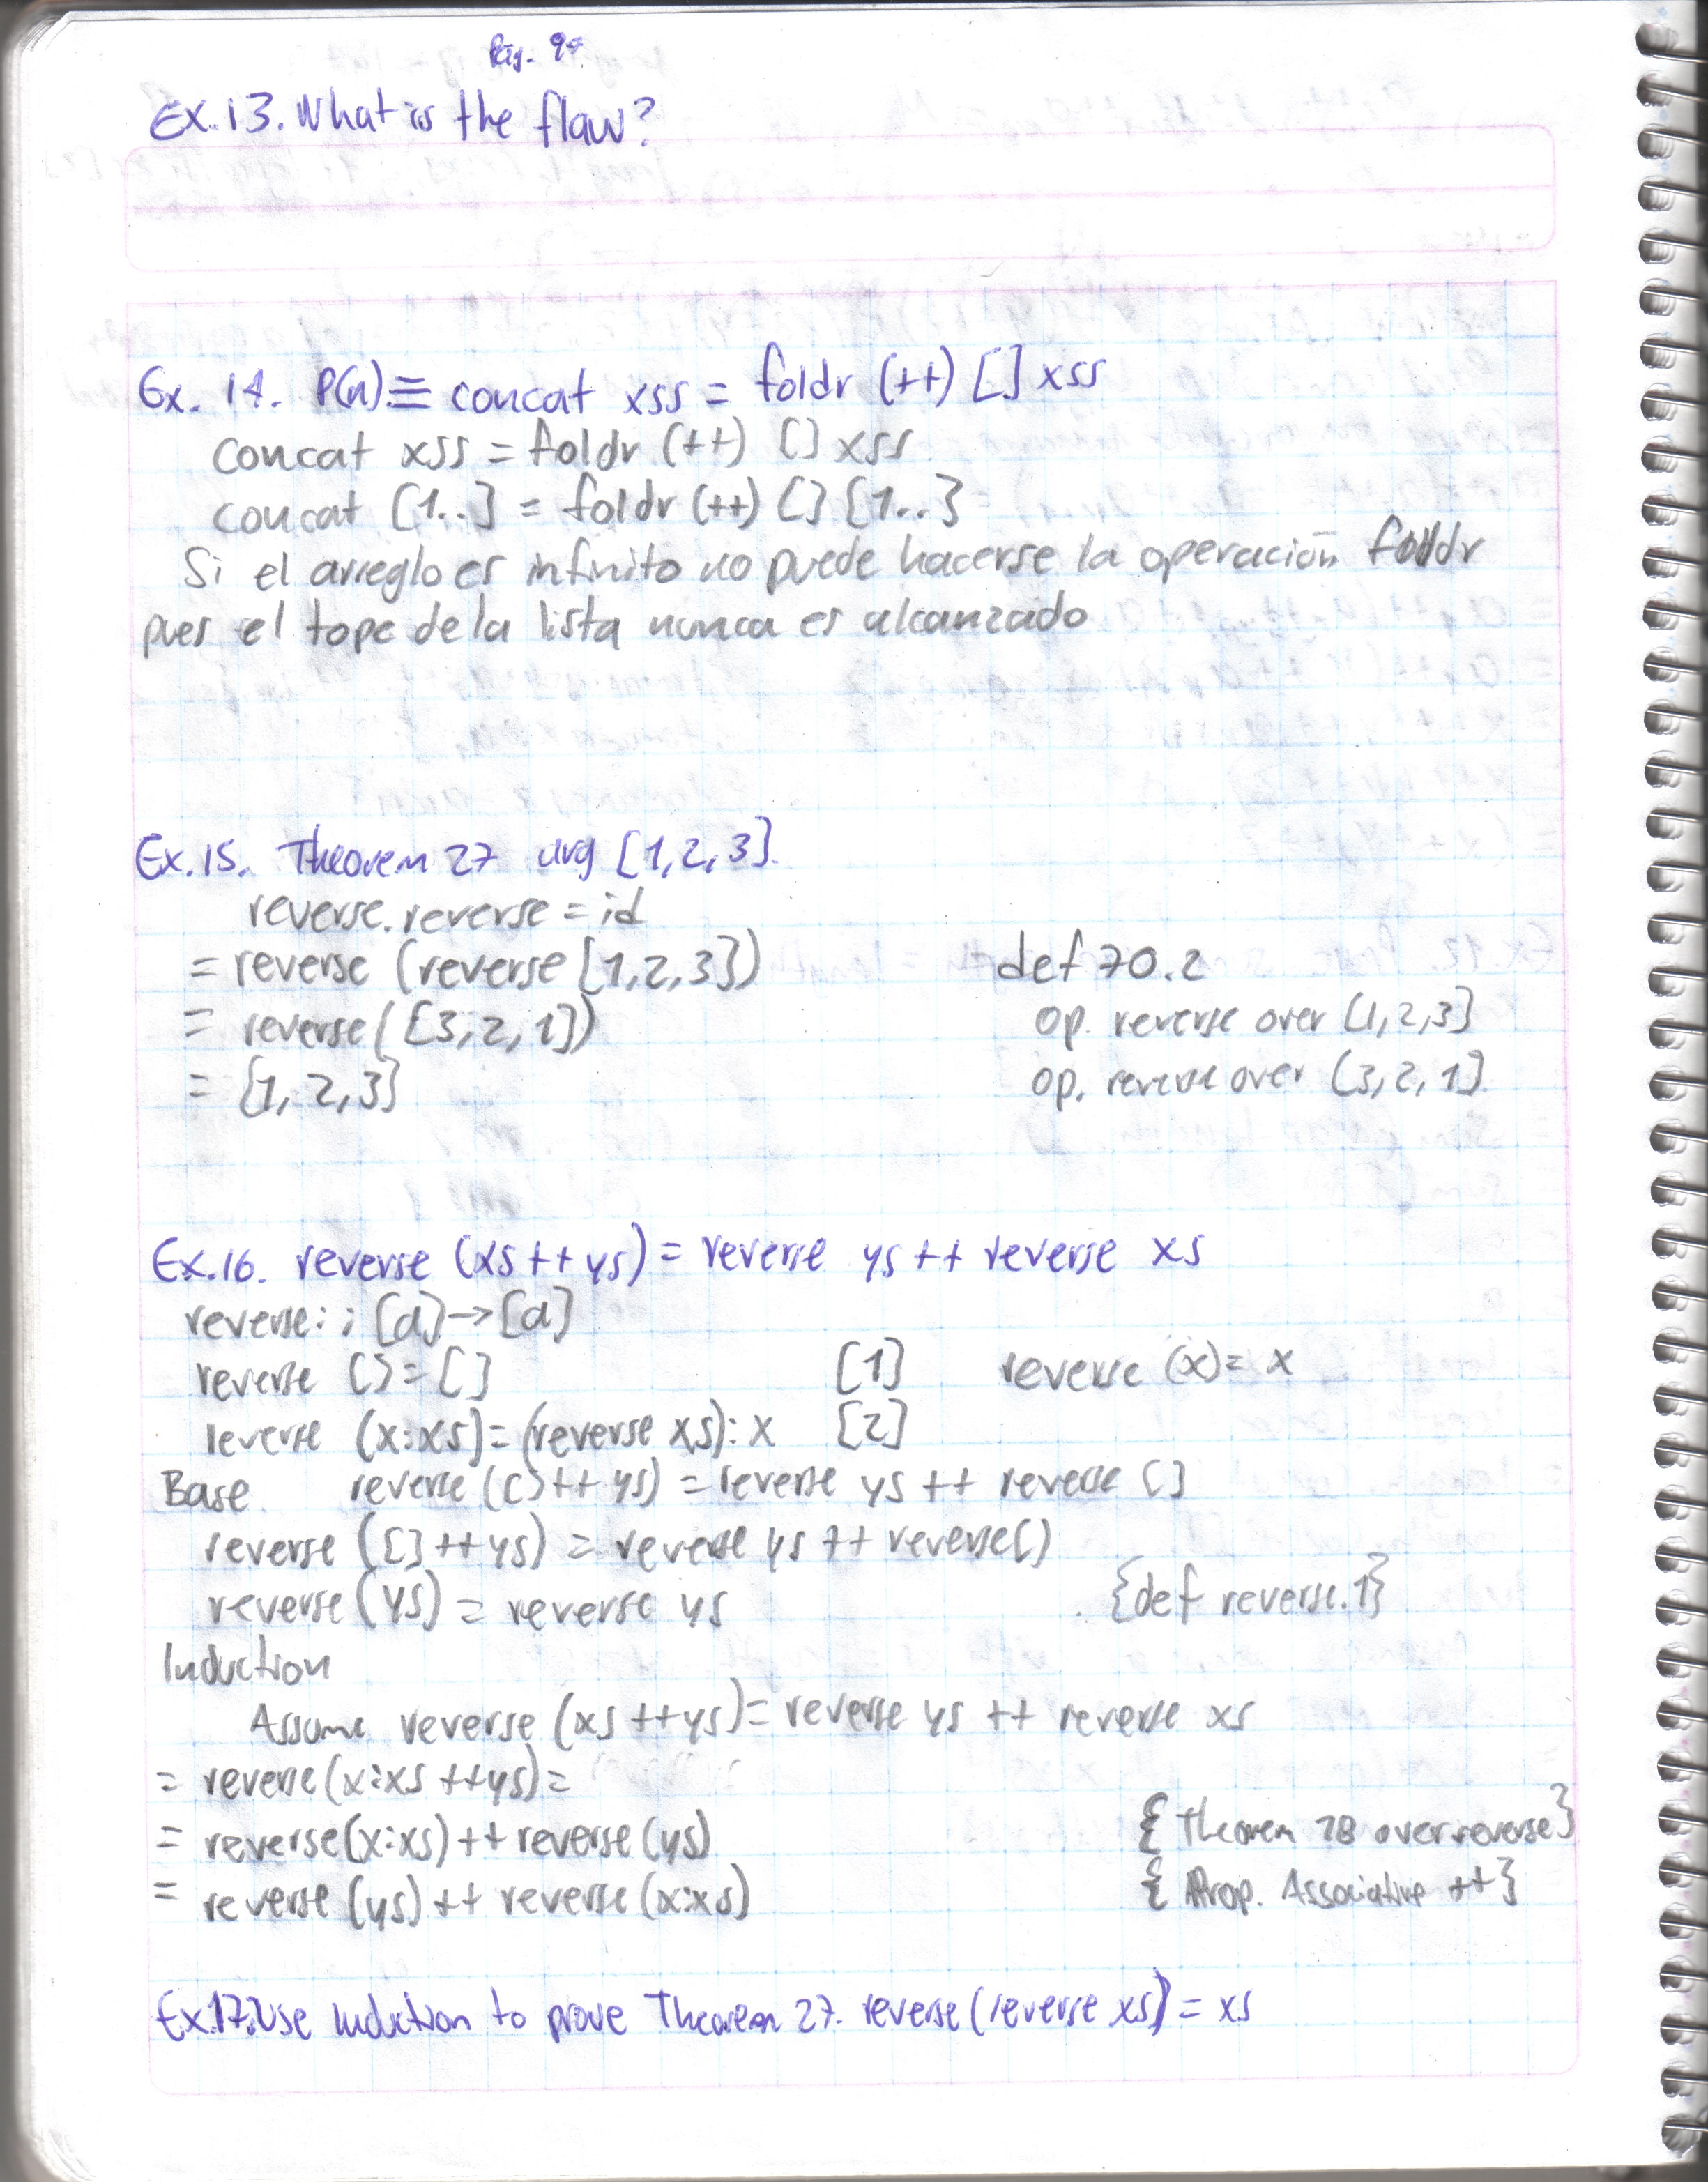 Pág. 94
Ex.13. What is the flaw?
Ex. 14. P(n) ≡ concat xss = foldr (++) [] xss
concat xss = foldr (++) [] xss
concat [1..] = foldr (++) [] [1..]
Si el arreglo es infinito no puede hacerse la operación foldr
pues el tope de la lista nunca es alcanzado
Ex.15. Theorem 27 arg [1,2,3].
reverse.reverse = id
= reverse (reverse [1,2,3]) def 70.2
= reverse([3,2,1]) op. reverse over [1,2,3]
= [1,2,3] op. reverse over [3,2,1]
Ex.16. reverse (xs ++ ys) = reverse ys ++ reverse xs
reverse:: [a]->[a]
reverse [] = [] [1] reverse (x) = x
reverse (x:xs) = (reverse xs): x [2]
Base reverse ([] ++ ys) = reverse ys ++ reverse []
reverse ([] ++ ys) = reverse ys ++ reverse[]
reverse (ys) = reverse ys {def reverse.1}
Induction
Assume reverse (xs ++ ys) = reverse ys ++ reverse xs
= reverse(x:xs ++ ys) =
= reverse(x:xs) ++ reverse(ys) { Theorem 28 over reverse}
= reverse (ys) ++ reverse (x:xs) { Prop. Associative ++}
Ex.17. Use Induction to prove Theorem 27. reverse (reverse xs) = xs